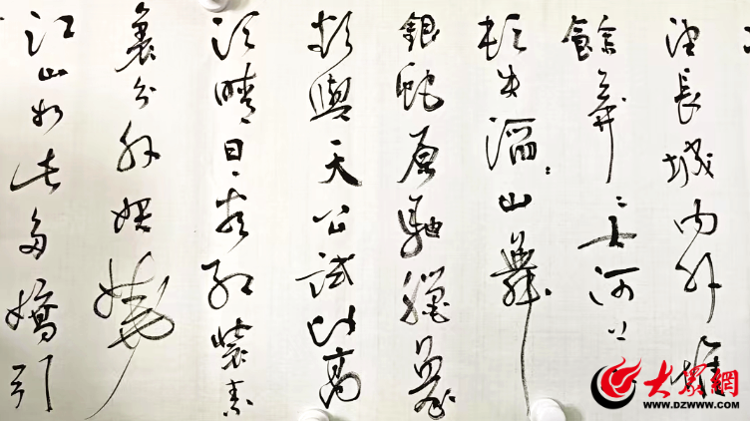 望長城內外惟
餘莽〻大河上下
頓失滔〻山舞
銀蛇原馳蠟象
欲與天公試比高
須晴日看紅裝素
裹分外妖嬈
江山如此多嬌引
大眾網
WWW.DZWWW.COM